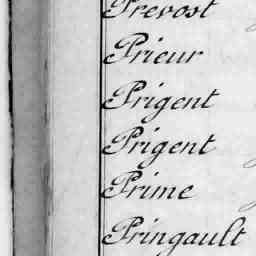 Prevost
Prieur
Prigent
Prigent
Prime
Pringault